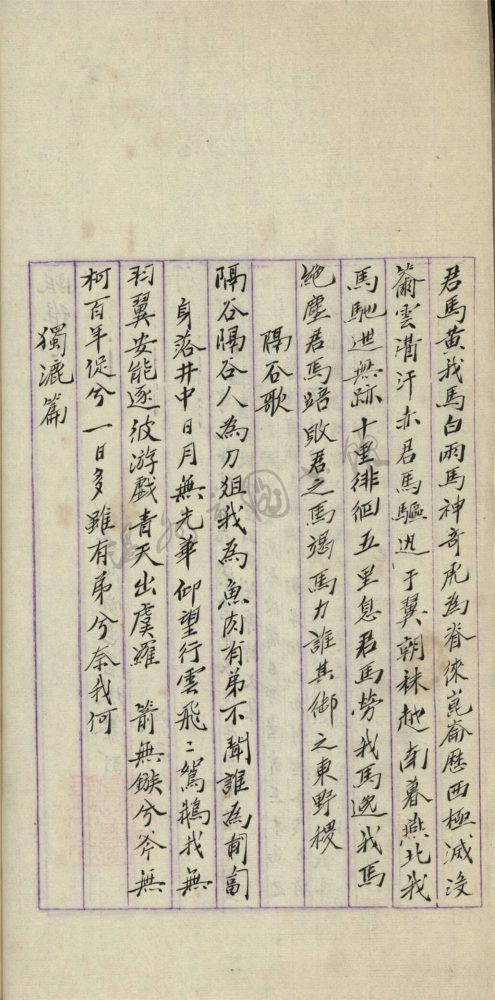 君馬黃我馬白兩馬神奇虎為脊徠崑崙歷西極滅沒
籋雲濡汗赤君馬驅迅于翼朝秣越南暮燕北我
馬馳迣無跡十里徘徊五里息君馬勞我馬逸我馬
絕塵君馬踣敗君之馬竭馬力誰其御之東野稷
隔谷歌
隔谷隔谷人為刀狙我為魚肉有弟不聞誰為匍匐
身落井中日月無光華仰望行雲飛〻駕鵝我無
羽翼安能逐彼游戲青天出虞羅 箭無鏃兮斧無
柯百年促兮一日多雖有弟兮奈我何
獨漉篇